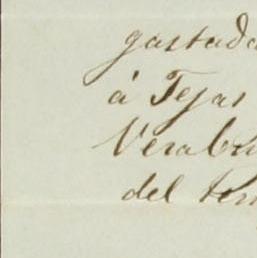 gastada
á Tejas
Veracru
del ter